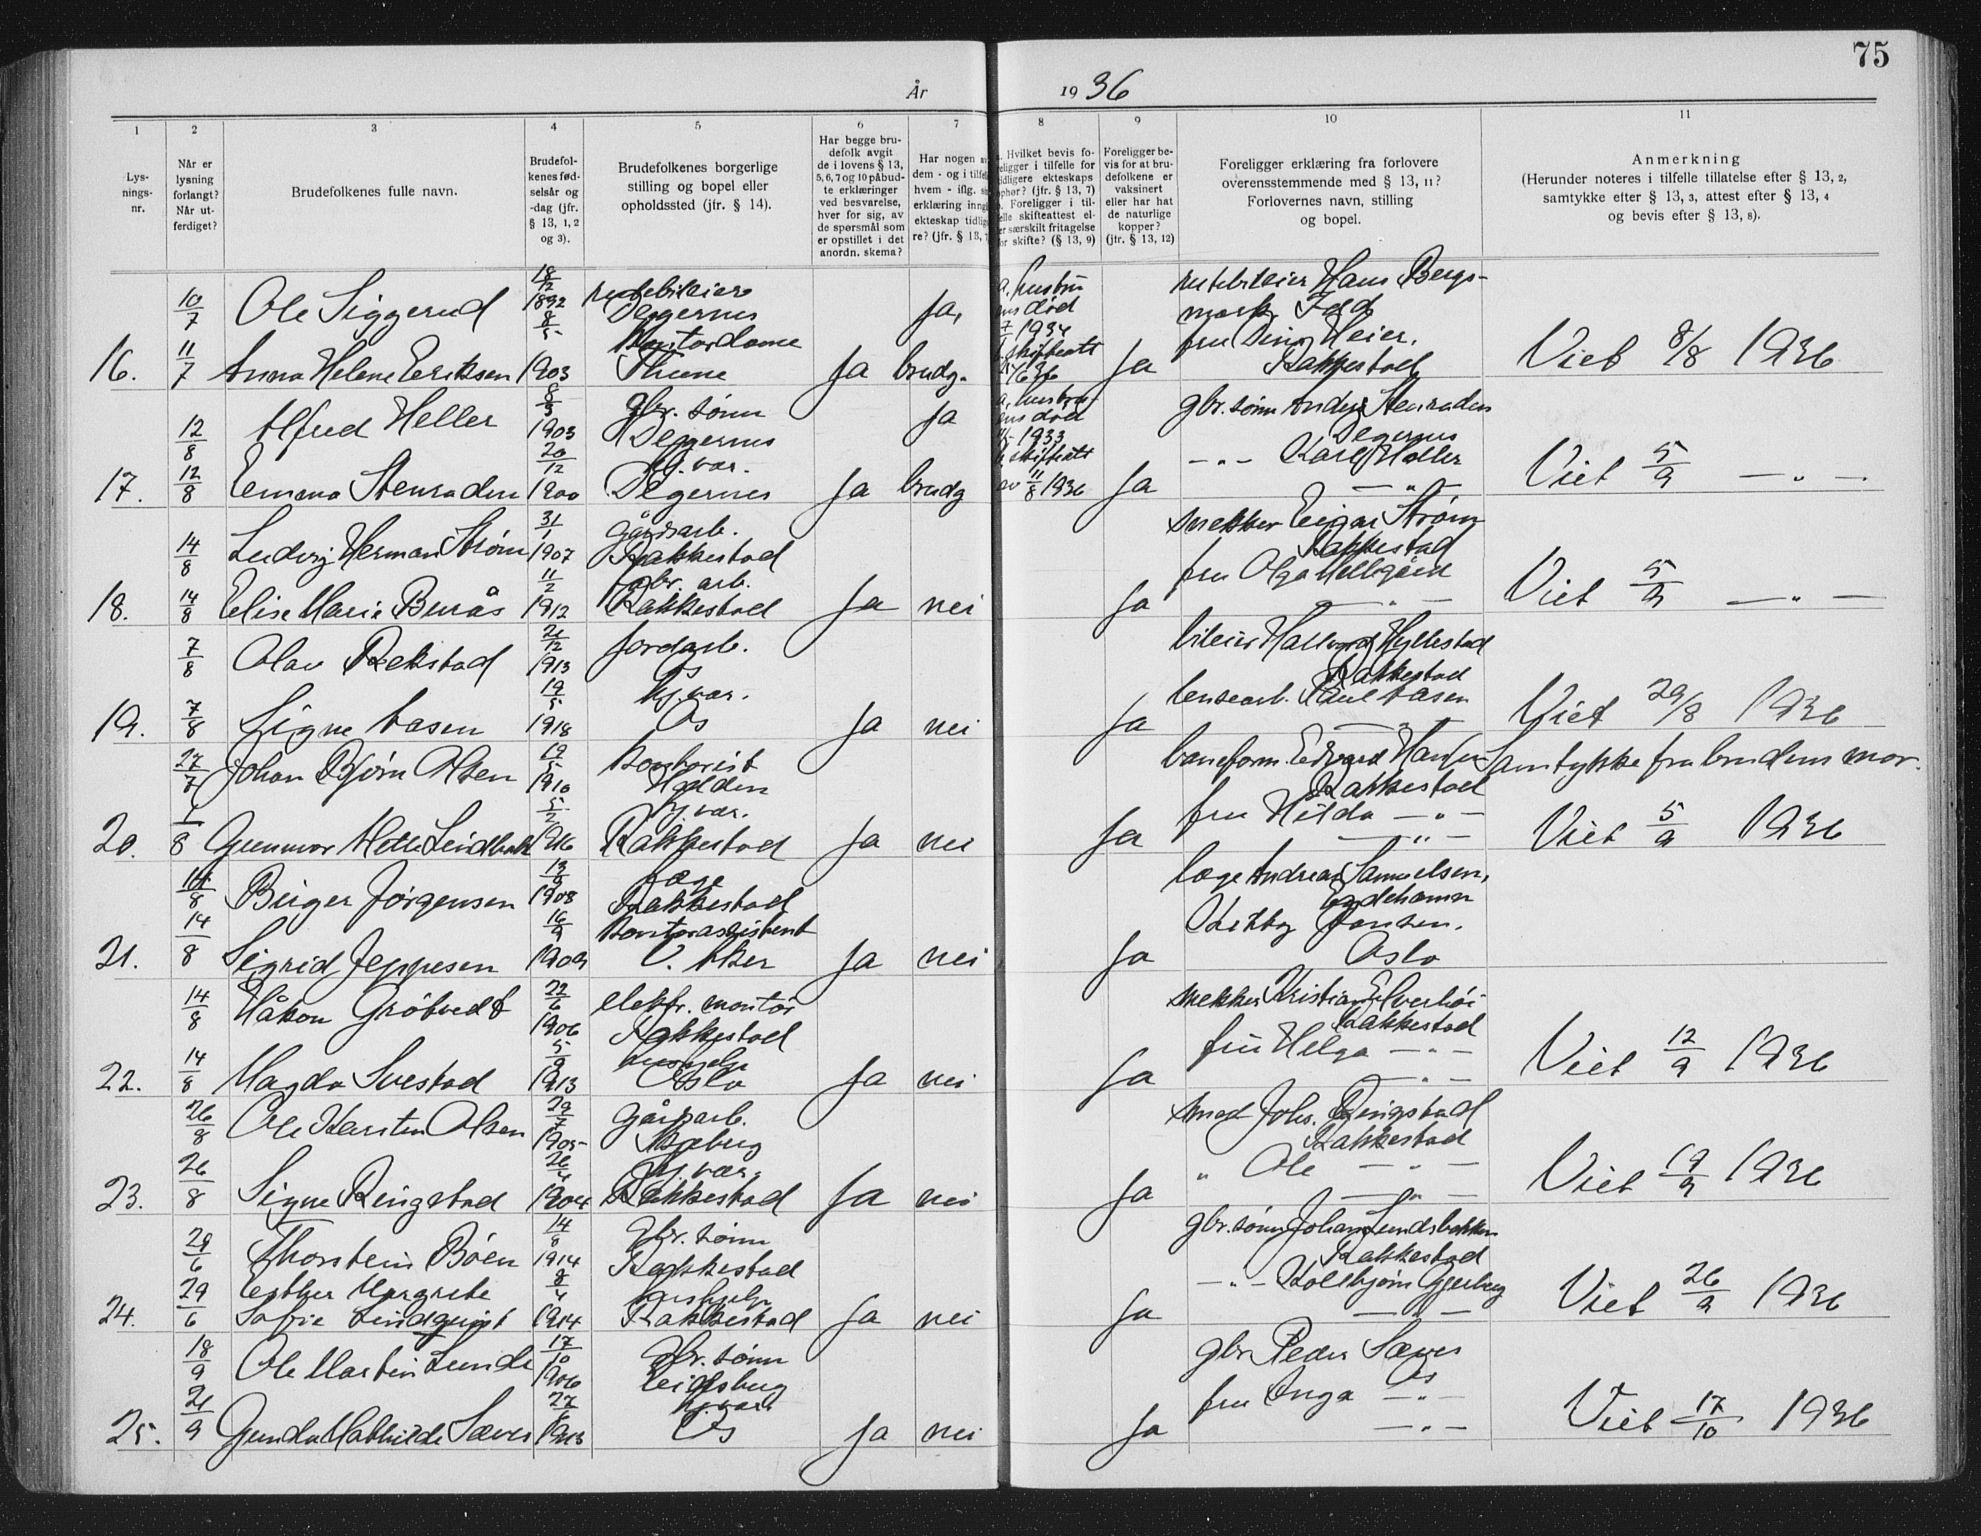 75
År 1936
1 2 3 4 5 6 7 8 9 10 11
Lysnings-nr.
Når er lysning forlangt? Når utferdiget?
Brudefolkenes fulle navn.
Brudefolkenes fødselsår og -dag (jfr. § 13, 1, 2 og 3).
Brudefolkenes borgerlige stilling og bopel eller opholdssted (jfr. § 14).
Har begge brudefolk avgit de i lovens § 13, 5, 6, 7 og 10 påbudte erklæringer ved besvarelse, hver for sig, av de spørsmål som er opstillet i det anordn. skema?
Har nogen av dem - og i tilfelle hvem - iflg. erklæring inngått ekteskap tidligere? (jfr. § 13, 7
a. Hvilket bevis foreligger i tilfelle for tidligere ekteskaps ophør? (jfr. § 13, 7) b. Foreligger i tilfelle skifteattest eller særskilt fritagelse for skifte? (§ 13, 9)
Foreligger bevis for at brudefolkene er vaksinert eller har hat de naturlige kopper? (jfr. § 13, 12)
Foreligger erklæring fra forlovere overensstemmende med § 13, 11? Forlovernes navn, stilling og bopel.
Anmerkning (Herunder noteres i tilfelle tillatelse efter § 13, 2, samtykke efter § 13, 3, attest efter § 13, 4 og bevis efter § 13, 8).
10/7 Ole Siggerud 18/12 1892 rutebileier Degernes Ja, a. hustru død 1934 rutebileier Hans Bergsmark Idd
16. 11/7 Anna Helene Eriksen 8/5 1903 Kontordame Ja brudg. b. skifteatt Ja fru Heier, Rakkestad Viet 8/8 1936
12/8 Alfred Heller 1903 gbr. sønn Degernes ja a. hustru død 1933 gbr. sønn Stenraden Degernes
17. 12/8 Emma Stenraden 20/12 1900 hj. vær. Degernes Ja brudg b. skifteatt av 11/8 1936 Ja —"— Karl Heller —"— Viet 5/9 —"—
14/8 Ludvig Herman Strøm 31/1 1907 gårdsarb. Rakkestad snekker Strøm Rakkestad
18. 14/8 Elise Marie Burås 11/2 1912 fabr. arb. Rakkestad Ja nei Ja fru Olga —"— Viet 5/9 —"—
7/8 Olav Rekstad 1913 jordarb. Os bileier Hallvard Hyllestad Rakkestad
19. 7/8 Signe 19/5 1918 hj. vær. Os Ja nei Ja Paul —"— Viet 29/8 1936
27/7 Johan Bjørn Olsen 19/5 1910 Kontorist Halden baneform. Edvard Rakkestad Samtykke fra brudens mor.
20. 1/8 Gunnvor 5/2 1916 hj. vær. Rakkestad Ja nei Ja fru Hilda —"— —"— Viet 5/9 1936
14/8 Birger Jørgensen 1908 læge Rakkestad læge Andreas Samuelsen, Eydehamn
21. 14/8 Sigrid Jeppesen 16/9 1909 Kontorassistent V. Aker Ja nei Ja Kitty Oslo
14/8 Håkon Grøtvedt 22/6 1906 elektr. montør Rakkestad snekker Kristian Elverhøi Rakkestad
22. 14/8 Magda Svestad 5/9 1913 hushjelp Oslo Ja nei Ja fru Helga —"— —"— Viet 12/9 1936
26/8 Ole Karsten Olsen 29/7 1905 gårdsarb. Skjeberg smed Johs. Ringstad Rakkestad
23. 26/8 Signe Ringstad 1904 hj. vær. Rakkestad Ja nei Ja " Ole —"— —"— Viet 19/9 1936
29/6 Thorstein Böen 14/8 1914 gbr. sønn Rakkestad gbr. sønn Johan Lundsbakken Rakkestad
24. 29/6 Esther Margrete Sofie Lindquist 1914 hushjelp Rakkestad Ja nei Ja —"— Kolbjørn Gjerberg —"— Viet 26/9 1936
18/9 Ole Martin Lunde 17/10 1906 gbr. sønn Eidsberg gbr Peder Sæves Os
25. 21/9 Gunda Mathilde Sæves hj. vær. Os Ja nei Ja fru Inga —"— —"— Viet 17/10 1936